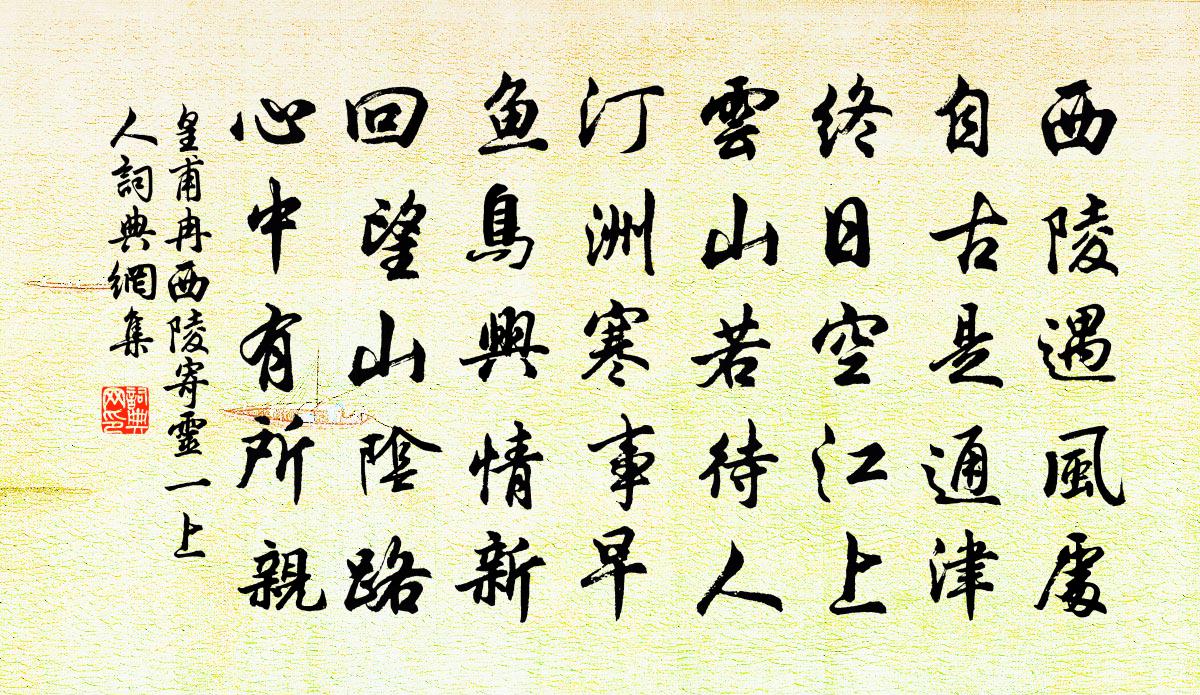 西陵遇風處
自古是通津
終日空江上
雲山若待人
汀洲寒事早
魚鳥興情新
回望山陰路
心中有所親
皇甫冉西陵寄靈一上
人詞典網集
詞典
网印